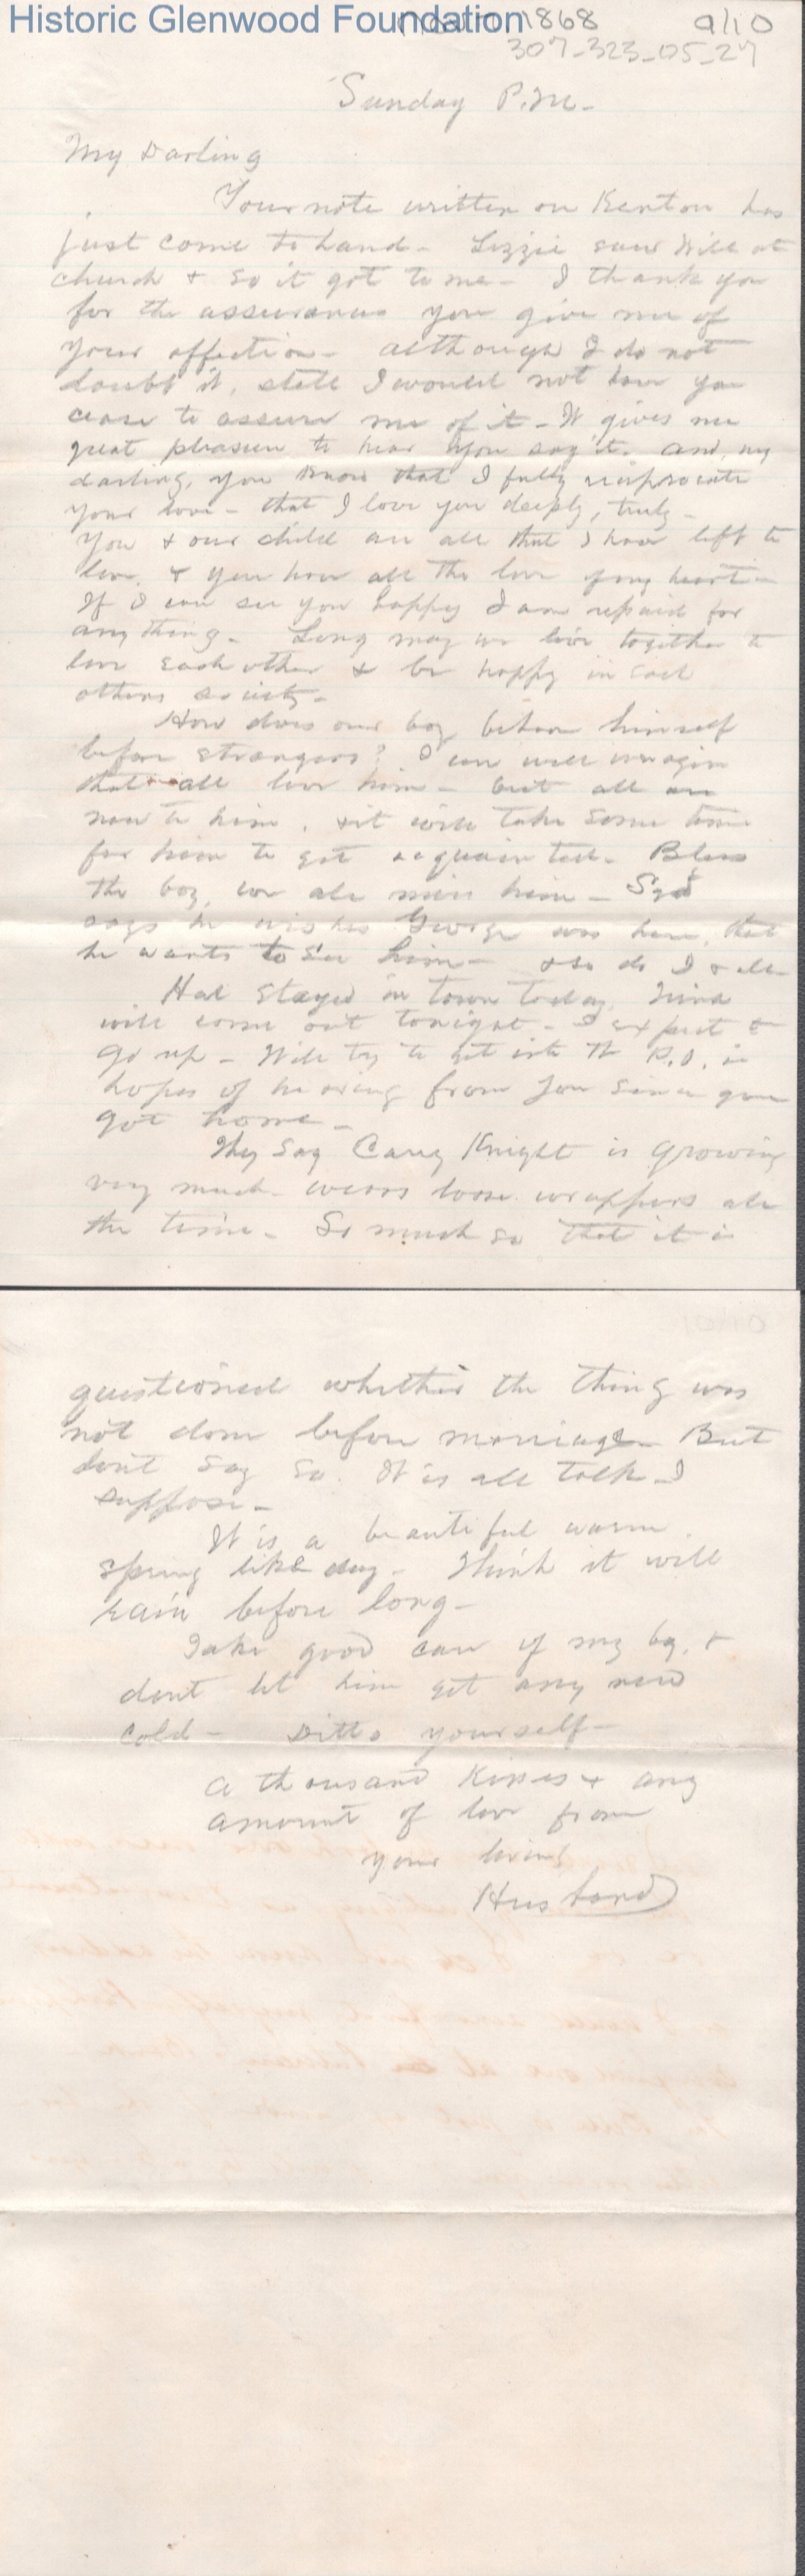 Historic Glenwood Foundation
1868 9/10
307-323-05-27
Sunday P.M.-
My Darling
Your note written on Kenton has
just come to hand - Lizzie saw Will at
church & so it got to me - I thank you
for the assurances you give me of
your affection - although I do not
doubt it, still I would not have you
cease to assure me of it - It gives me
great pleasure to hear you say it. and, my
darling, you know that I fully reciprocate
your love - that I love you deeply, truly -
You & our child are all that I have left to
love, & you have all the love of my heart -
If I can see you happy I am repaid for
any thing - Long may we live together to
love each other & be happy in each
others society -
How does our boy behave himself
before strangers? I can well imagine
that all love him - but all are
new to him, & it will take some time
for him to get acquainted. Bless
the boy, we all miss him -
says he wishes George was here, that
he wants to see him - & so do I & all -
Hal stayed in town today.
will come out tonight - I expect to
go up - Will try to get into the P.O. in
hopes of hearing from you since you
got home -
They say Carey Knight is growing
very much - wears loose wrappers all
the time - So much so that it is
questioned whether the thing was
not done before marriage - But
dont say so. It is all talk I
suppose -
It is a beautiful warm
spring like day - Think it will
rain before long -
Take good care of my boy, &
dont let him get any new
cold - Ditto yourself -
A thousand kisses & any
amount of love from
your loving
Husband